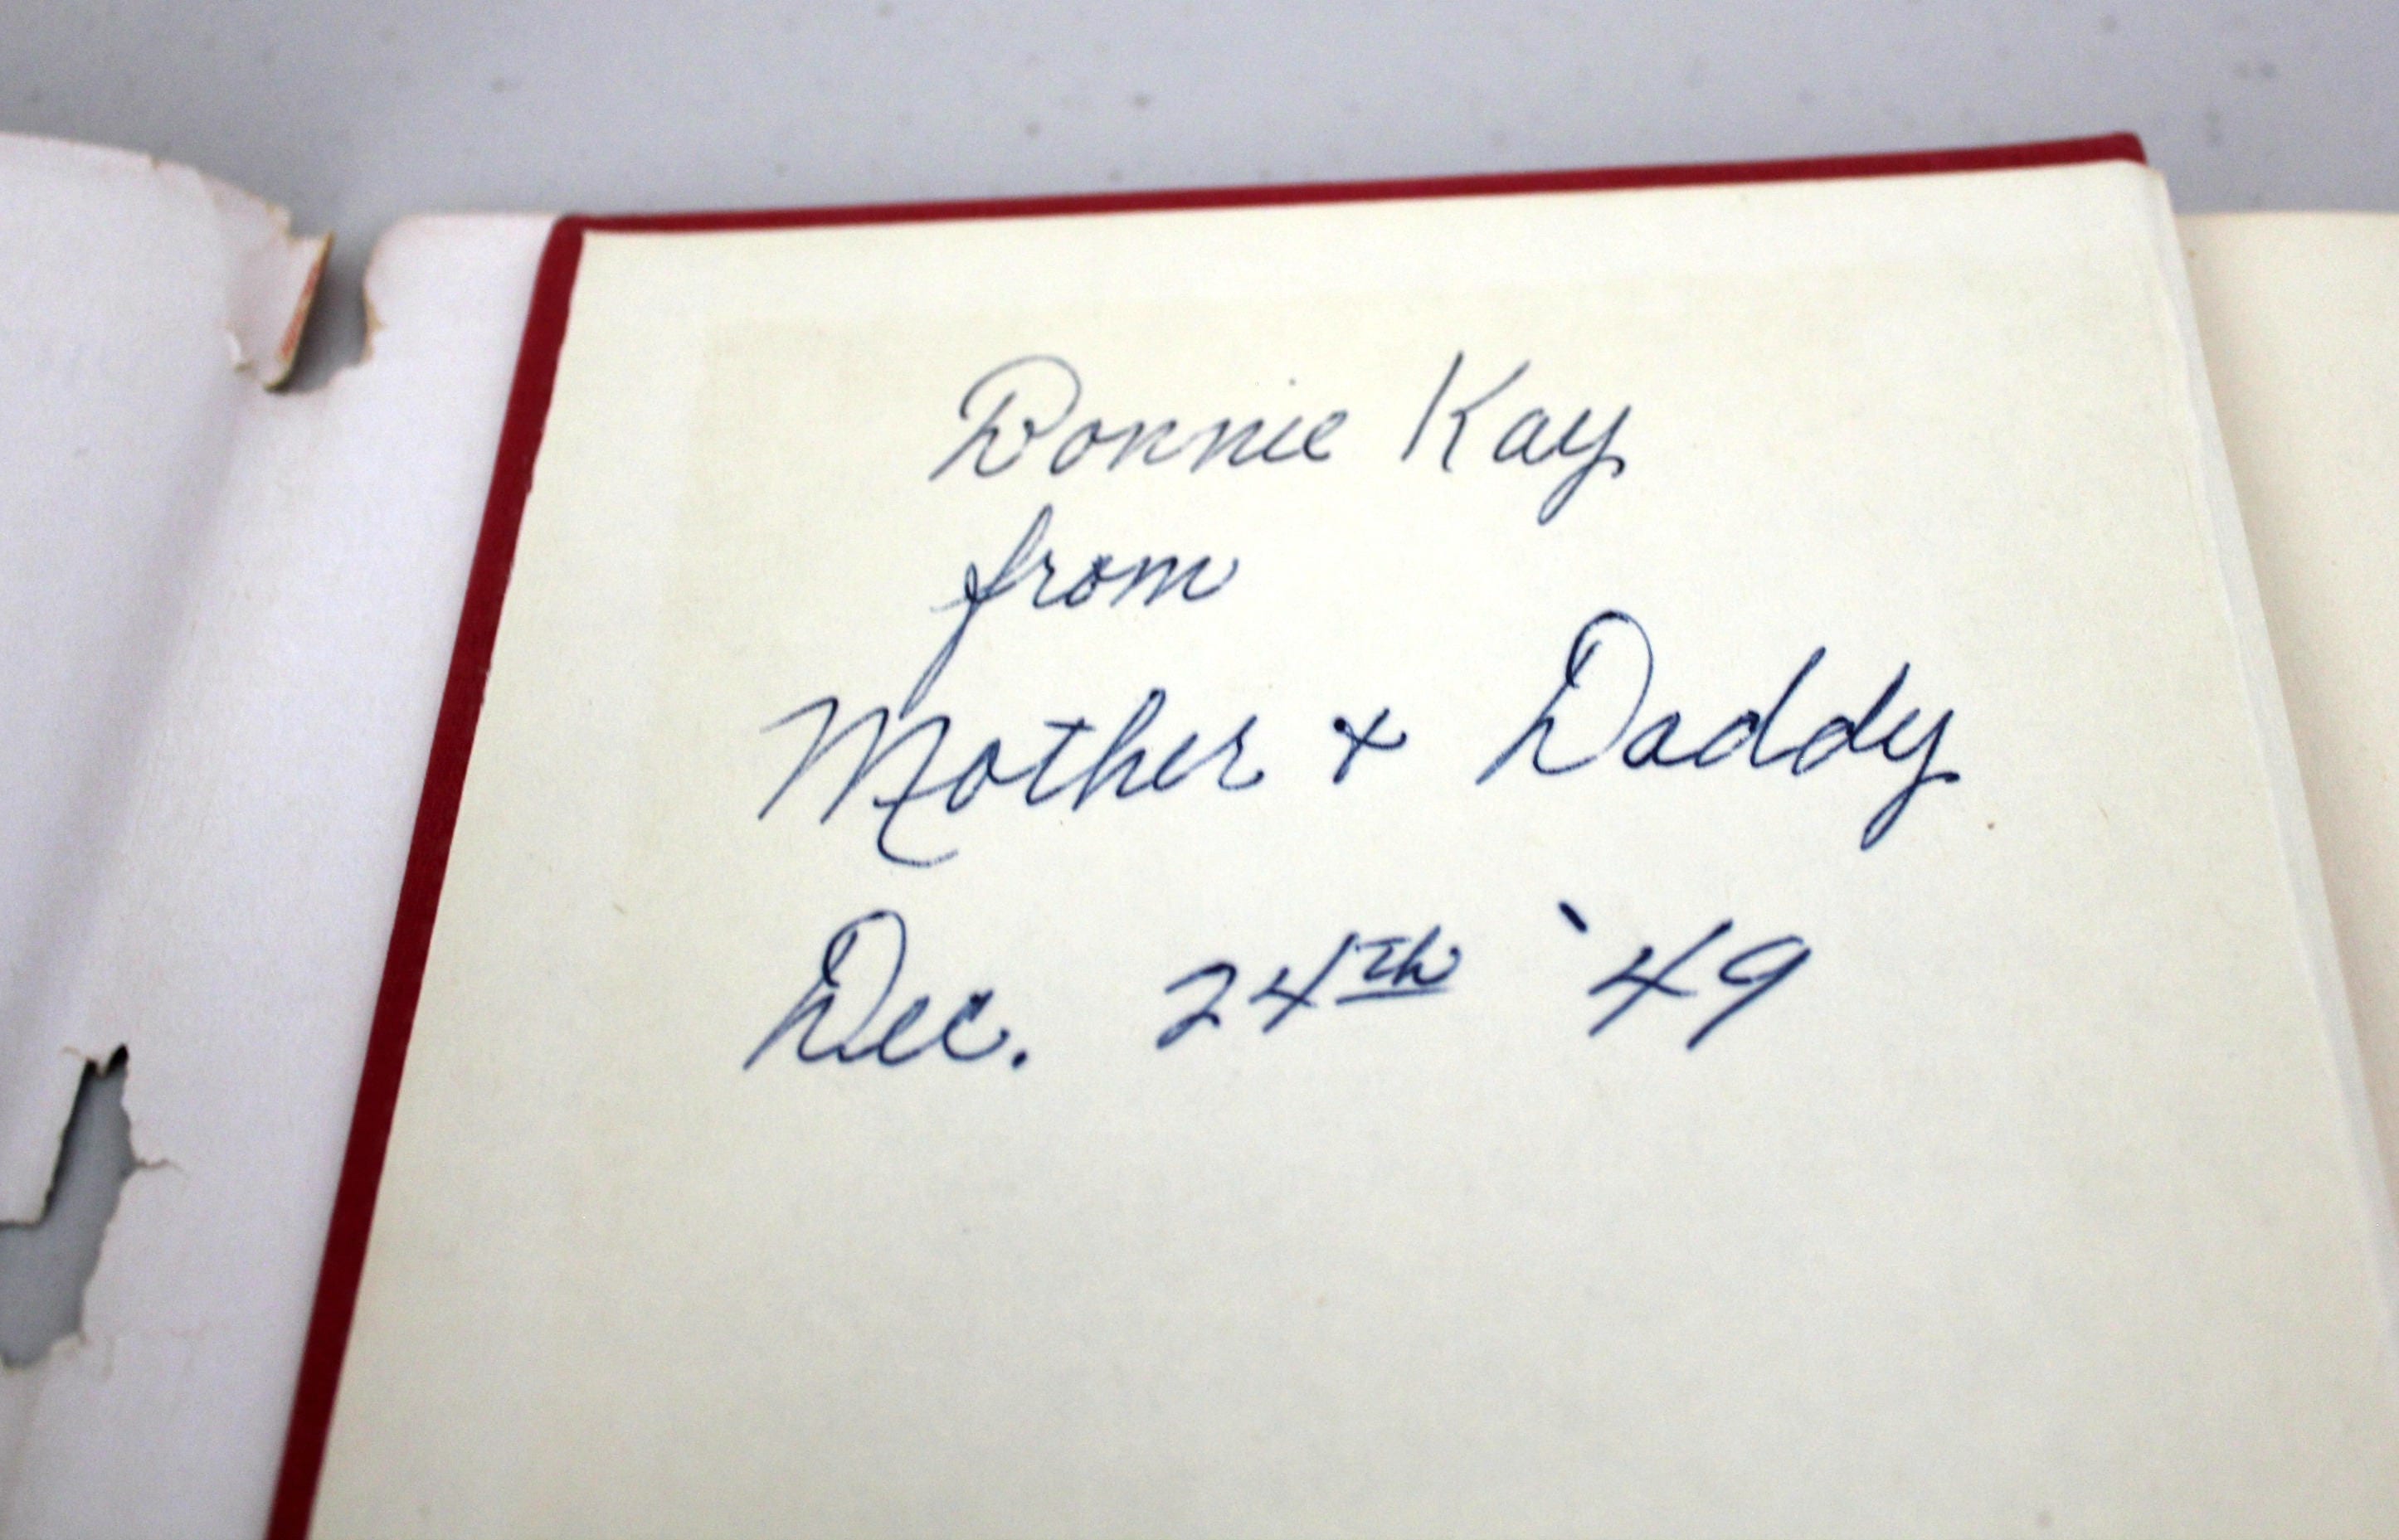 Donnie Kay
from
Mother + Daddy
Dec. 24th '49